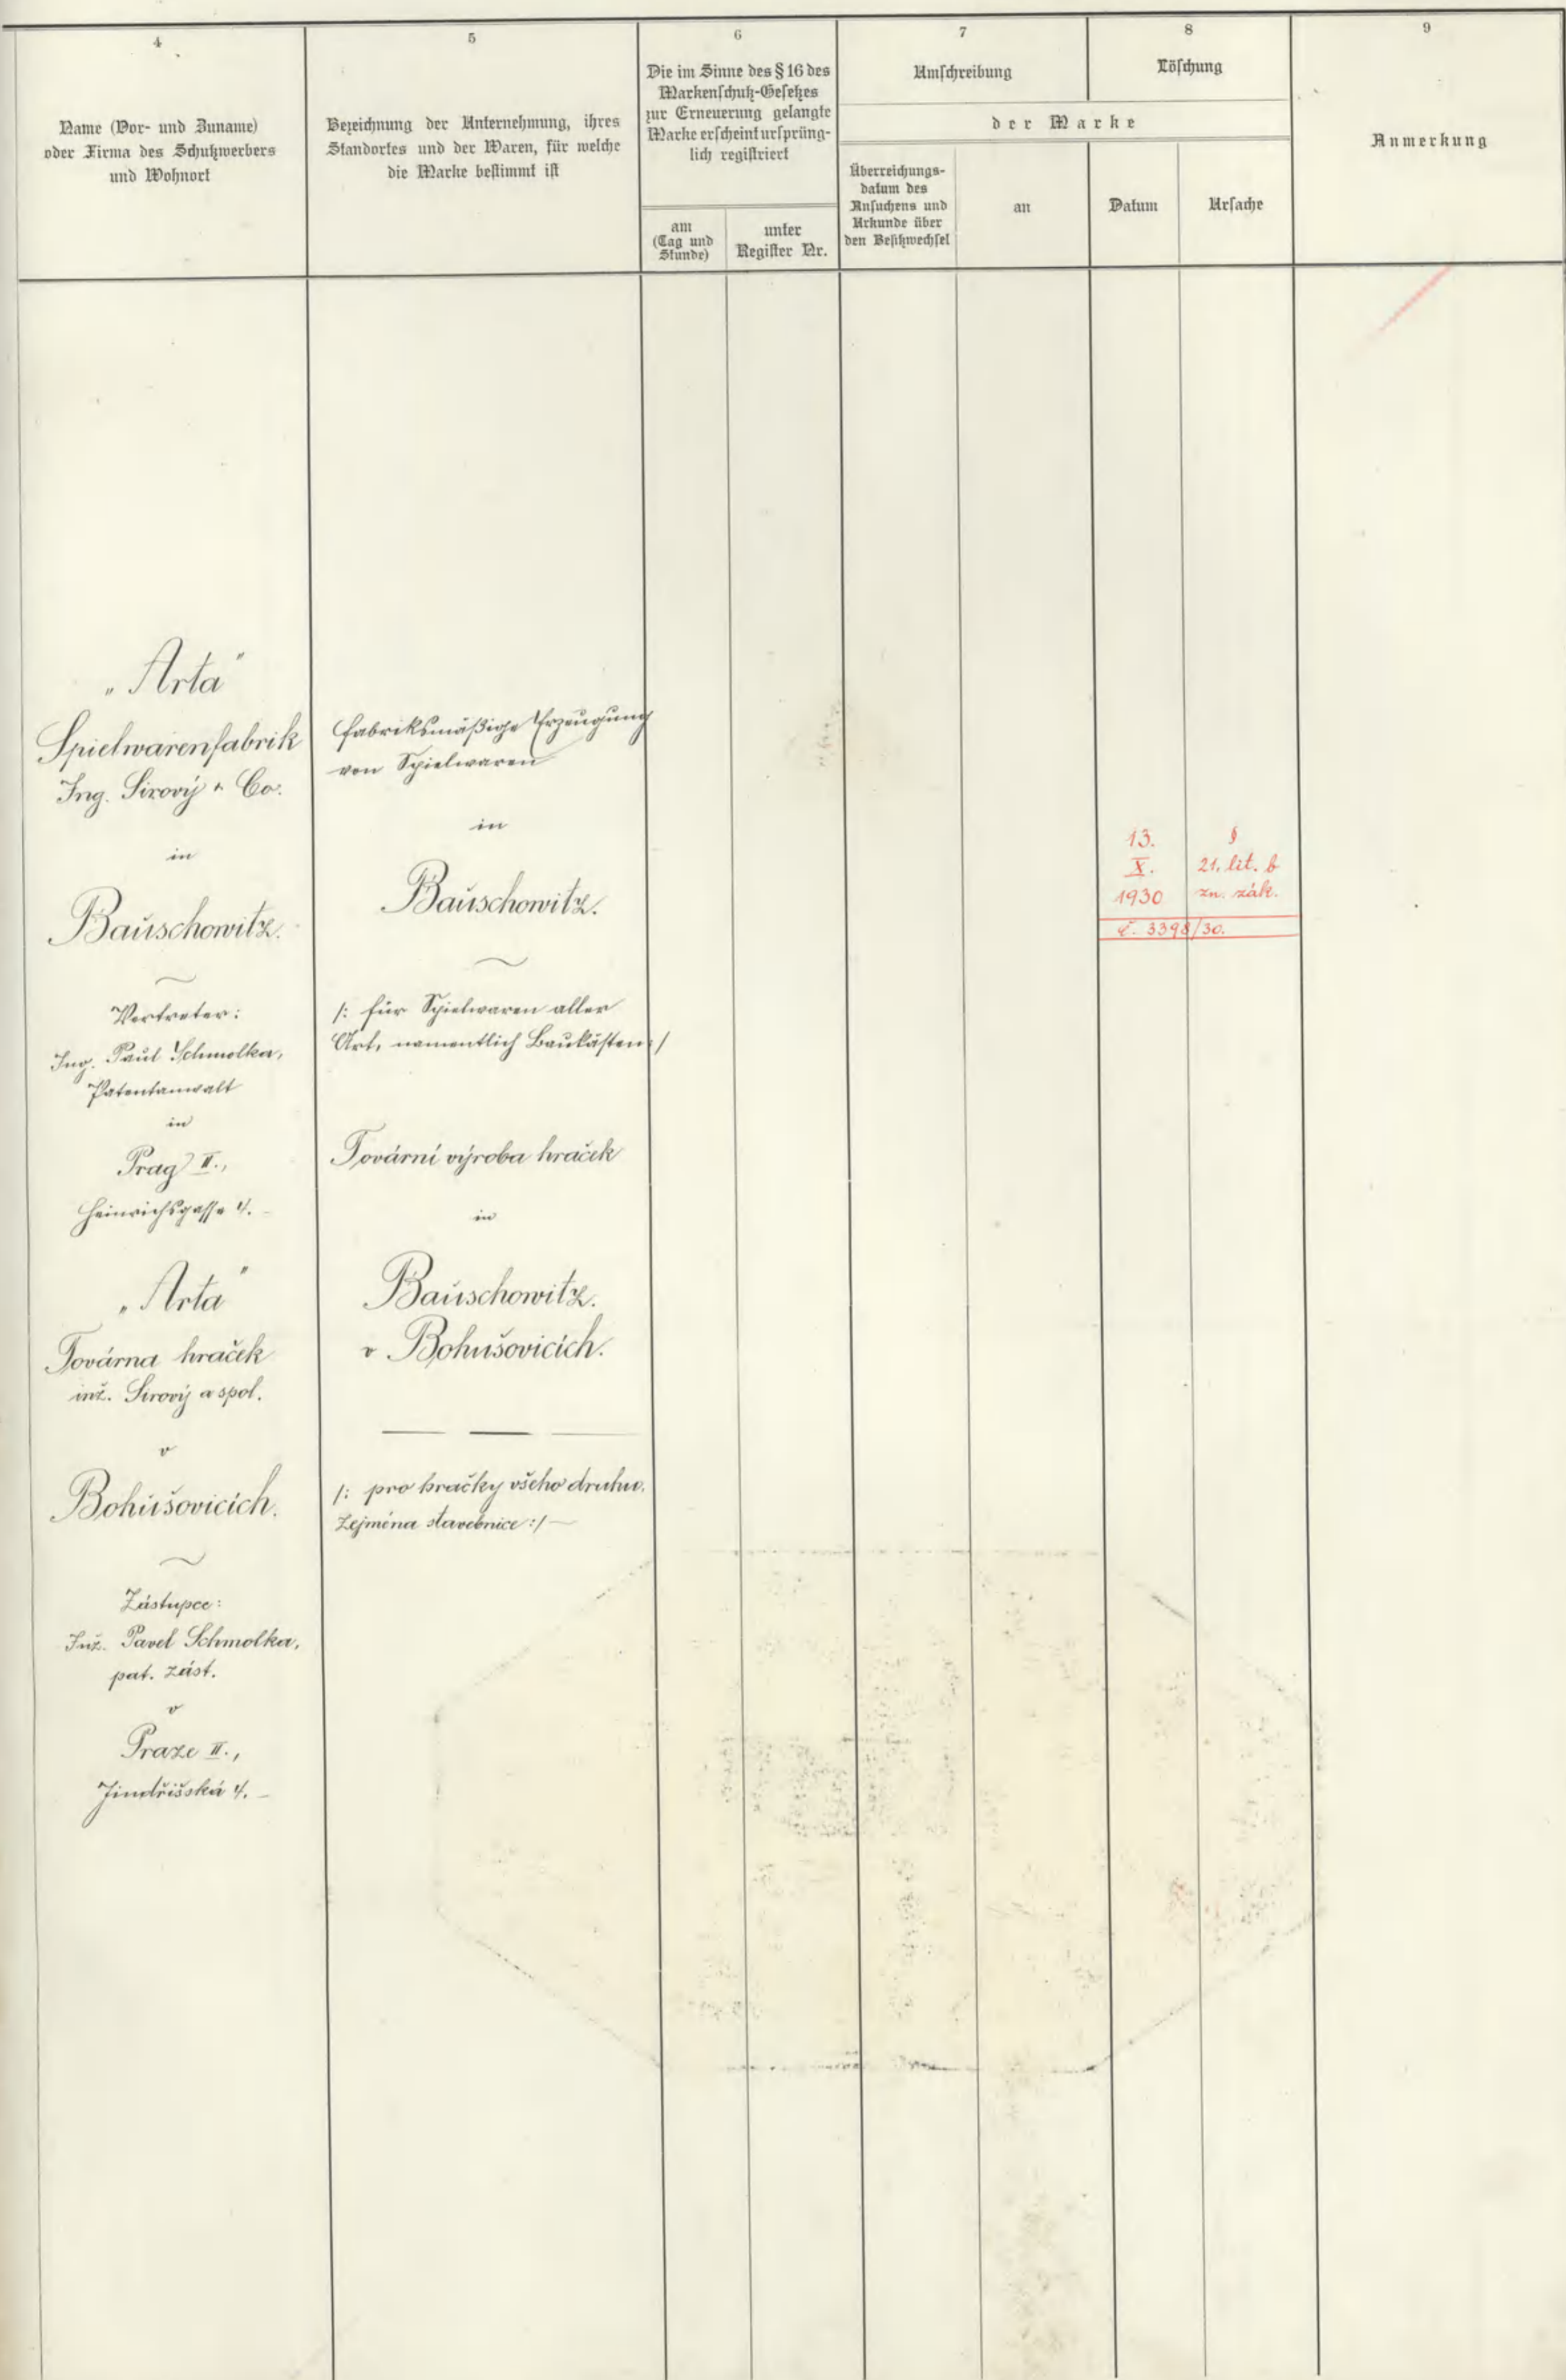 4
Name (Vor- und Zuname)
oder Firma des Schutzwerbers
und Wohnort
5
Bezeichnung der Unternehmung, ihres
Standortes und der Waren, für welche
die Marke bestimmt ist
6
Die im Sinne des § 16 des
Markenschutz-Gesetzes
zur Erneuerung gelangte
Marke erscheint ursprüng-
lich registriert
am
(Tag und
Stunde)
unter
Register Nr.
7
Umschreibung
8
Löschung
der Marke
Überreichungs-
datum des
Ansuchens und
Urkunde über
den Besitzwechsel
an
Datum
Ursache
9
Anmerkung
„Arta"
Spielwarenfabrik
Ing. Sirový & Co.
in
Bauschowitz.
Vertreter:
Ing. Paul Schmolka,
Patentanwalt
in
Prag II.,
Heinrichsgasse 4.
„Arta"
Továrna hraček
inž. Sirový a spol.
v
Bohušovicích.
Zástupce:
Inž. Pavel Schmolka,
pat. zást.
v
Praze II.,
Jindřišská 4.
fabriksmäßige Erzeugung
von Spielwaren
in
Bauschowitz.
/: für Spielwaren aller
Art, namentlich Baukästen :/
Tovární výroba hraček
in
Bauschowitz.
v Bohušovicích.
/: pro hračky všeho druhu.
Zejména stavebnice :/
13.
X.
1930
§
21. lit. b
zn. zák.
č. 3398/30.